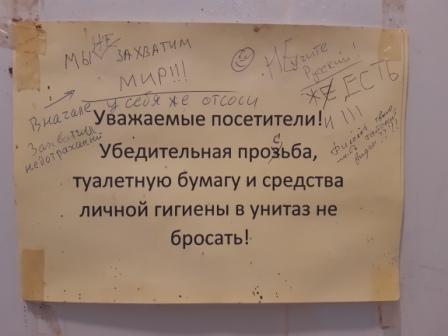 МЫ НЕ ЗАХВАТИМ
МИР!!!
Вначале у себя же отсоси
Захватчик
недотраханный
Учите
Русский!
ЖЕ ЕСТЬ
И !!!
Уважаемые посетители!
Убедительная прозьба,
с
туалетную бумагу и средства
личной гигиены в унитаз не
бросать!